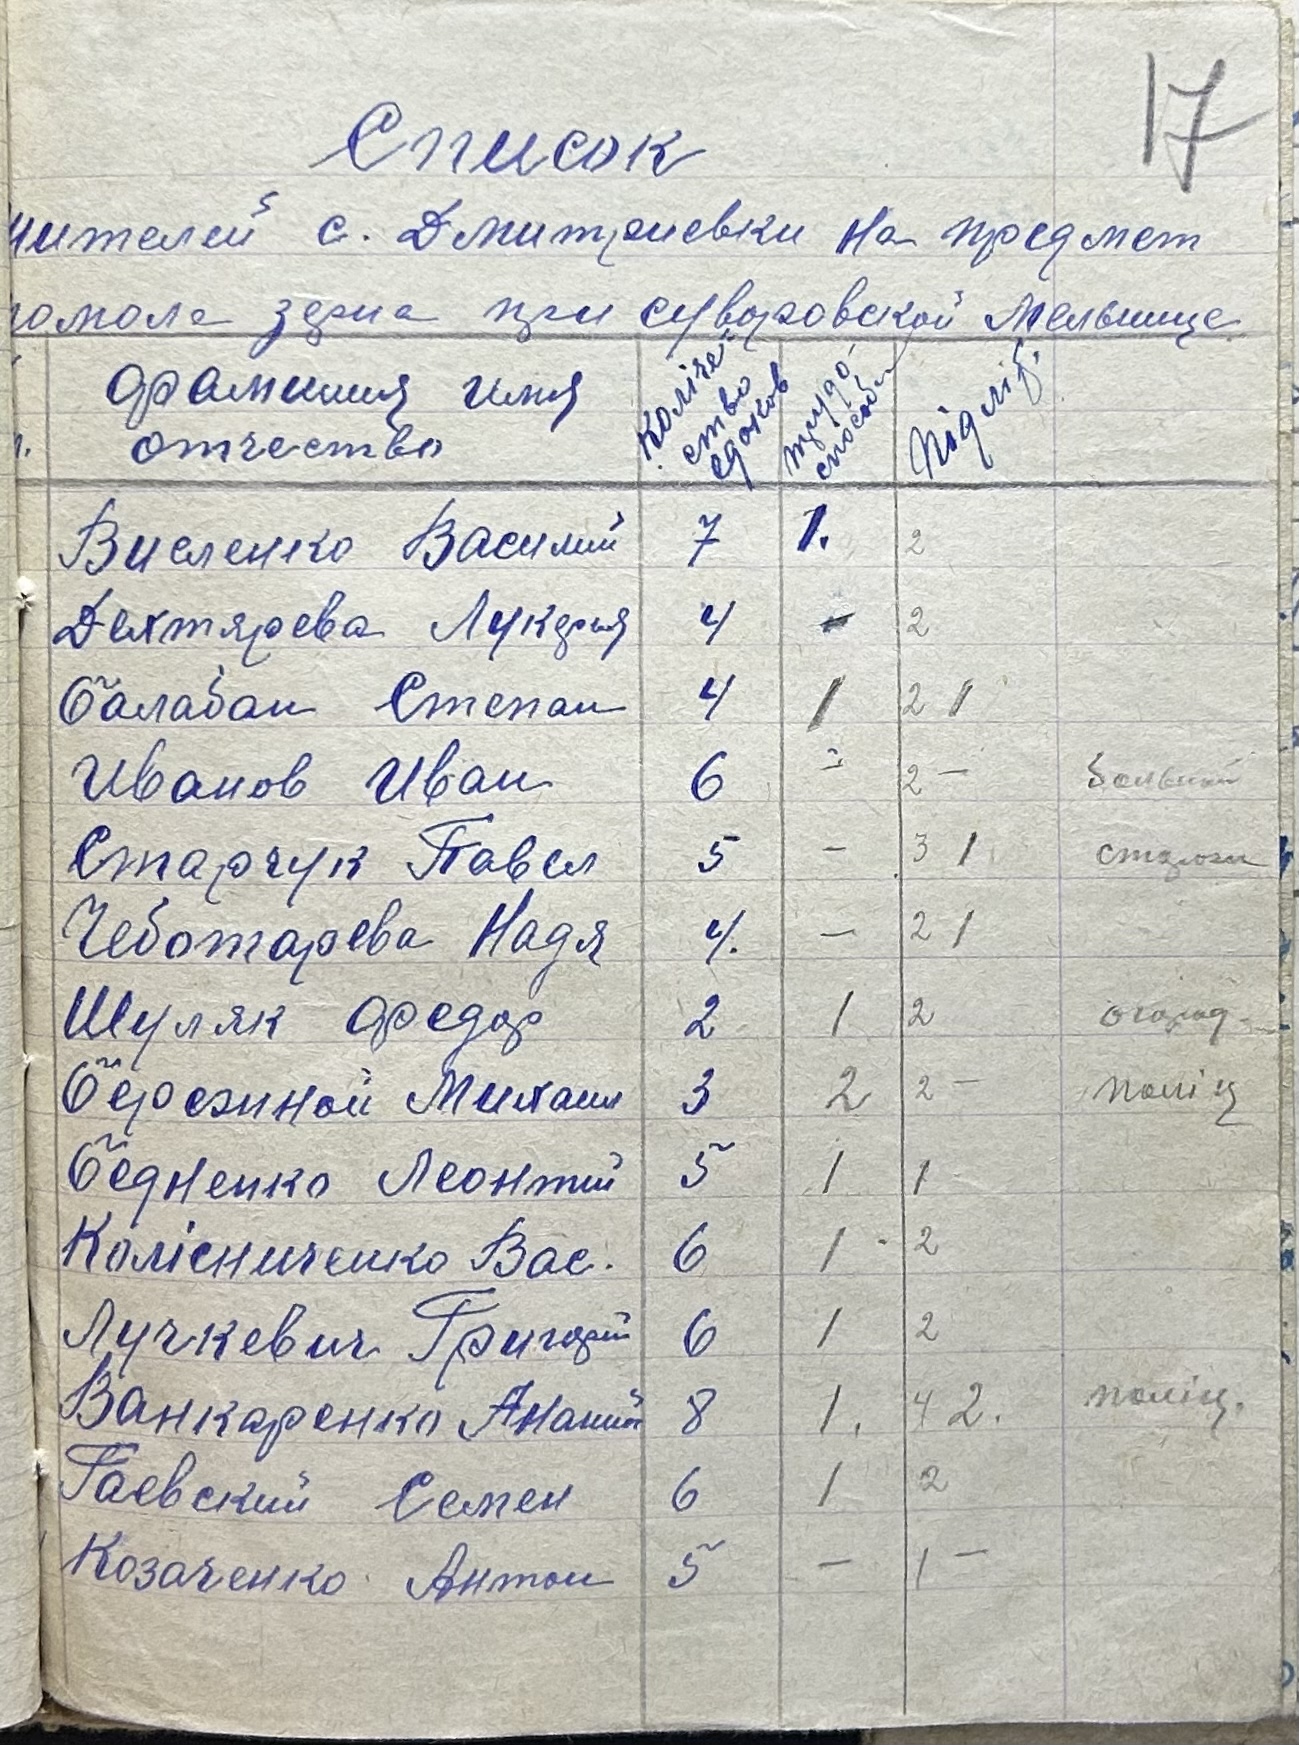 17
Список
жителей с. Дмитриевки на предмет
помола зерна при суворовской мельнице
Фамилия имя отчество Колiчество едоков трудоспособн пiдлiт.
Висленко Василий 7 1. 2
Дехтярева Лукерия 4 - 2
Балабан Степан 4 1 2 1
Иванов Иван 6 - 2 - больной
Старчук Павел 5 - 3 1
Чеботарева Надя 4. - 2 1
Шуляк Федор 2 1 2 огород.
Бережной Михаил 3 2 2 - полiц
Бедненко Леонтий 5 1 1
Колiсниченко Вас. 6 1 2
Лучкевич Григорий 6 1 2
Ванкаренко Ананий 8 1. 4 2. полiц.
Гаевский Семен 6 1 2
Козаченко Антон 5 - 1 -